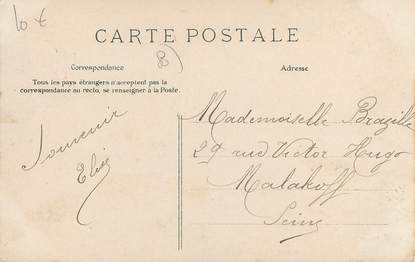 10 €
CARTE POSTALE
8
Correspondance
Adresse
Tous les pays étrangers n'acceptent pas la
correspondance au recto, se renseigner à la Poste.
Souvenir
Elise
Mademoiselle Brazille
29 rue Victor Hugo
Malakoff
Seine